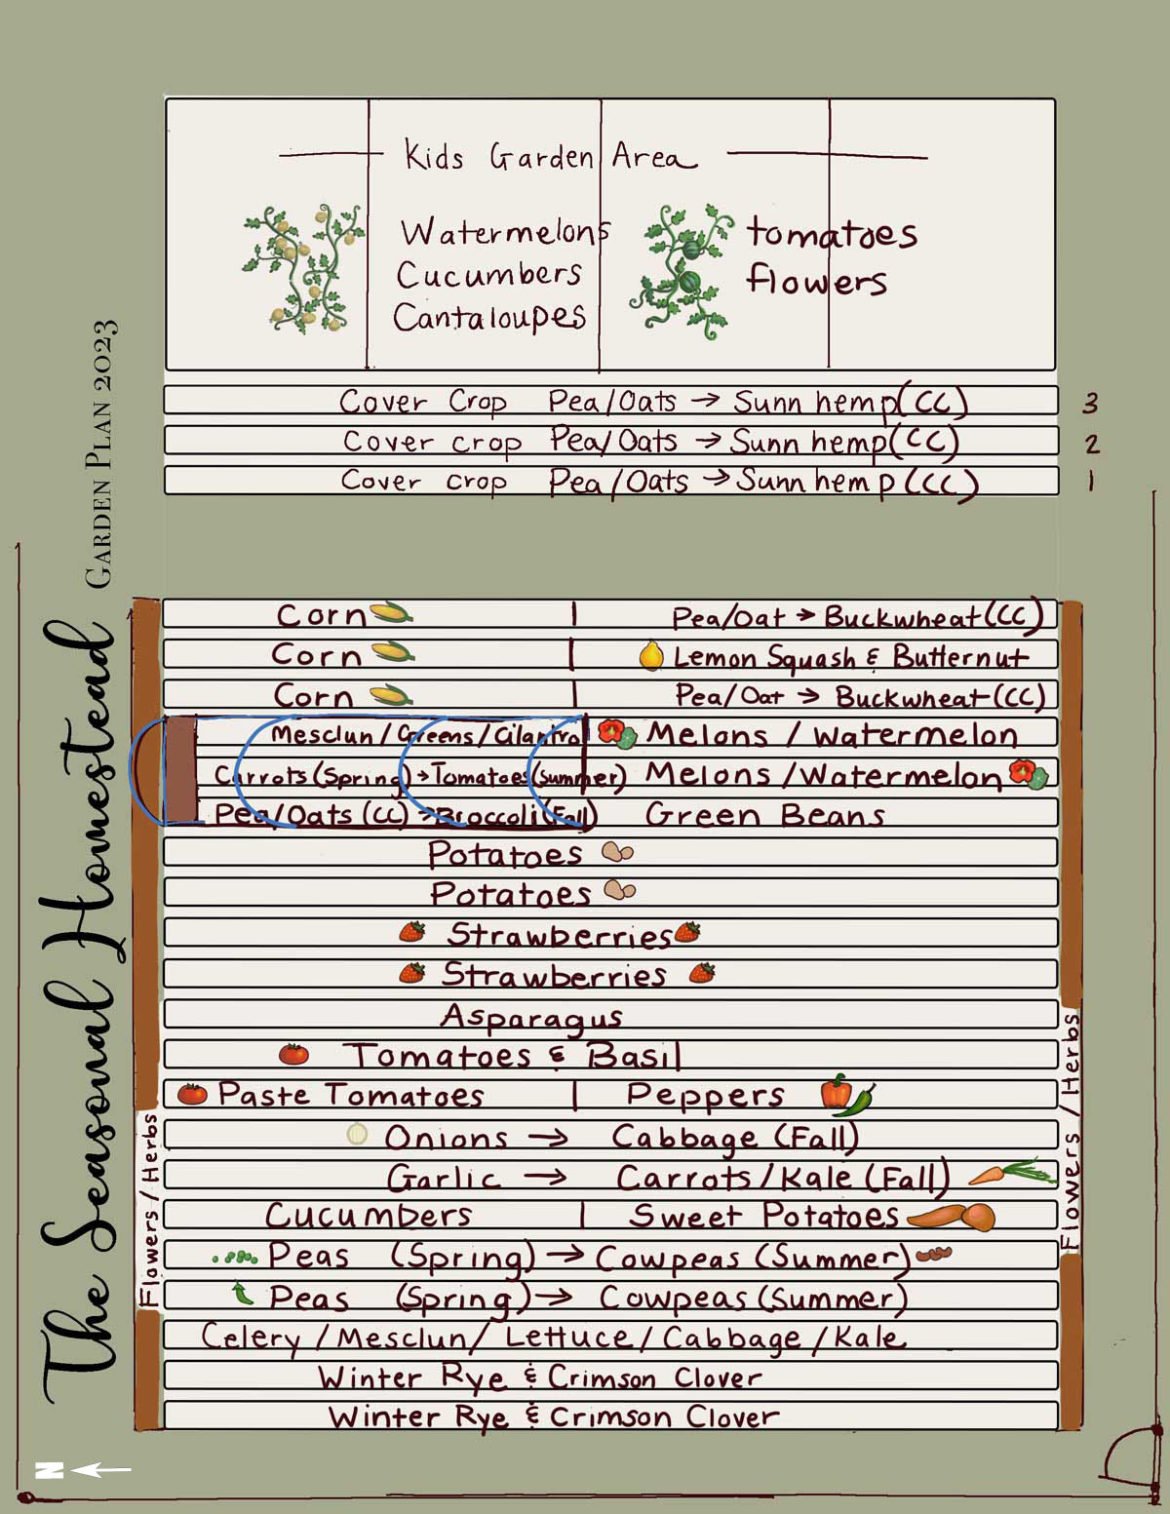 Kids Garden Area
Watermelons
Cucumbers
Cantaloupes
tomatoes
flowers
Cover Crop Pea/Oats → Sunn hemp(CC) 3
Cover crop Pea/Oats → Sunn hemp(CC) 2
Cover crop Pea/Oats → Sunn hemp (CCC) 1
The Seasonal Homestead
Garden Plan 2023
Corn | Pea/Oat → Buckwheat (CC)
Corn | Lemon Squash & Butternut
Corn | Pea/Oat → Buckwheat (CC)
Mesclun / Greens / Cilantro Melons / Watermelon
Carrots (Spring) → Tomatoes (Summer) Melons / Watermelon
Pea/Oats (CC) → Broccoli (Fall) Green Beans
Potatoes
Potatoes
Strawberries
Strawberries
Asparagus
Tomatoes & Basil
Paste Tomatoes | Peppers
Onions → Cabbage (Fall)
Garlic → Carrots/Kale (Fall)
Cucumbers | Sweet Potatoes
Peas (Spring) → Cowpeas (Summer)
Peas (Spring) → Cowpeas (Summer)
Celery / Mesclun / Lettuce / Cabbage / Kale
Winter Rye & Crimson Clover
Winter Rye & Crimson Clover
Flowers / Herbs
Flowers / Herbs
N